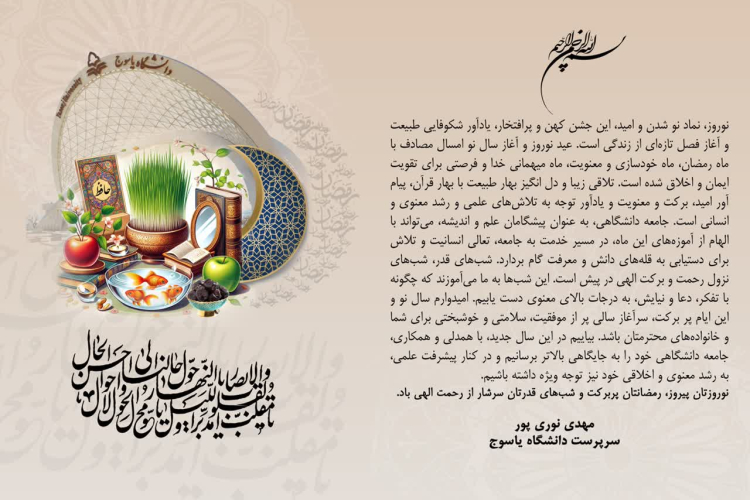 بسم الله الرحمن الرحیم
نوروز، نماد نو شدن و امید، این جشن کهن و پرافتخار، یادآور شکوفایی طبیعت
و آغاز فصل تازه‌ای از زندگی است. عید نوروز و آغاز سال نو امسال مصادف با
ماه رمضان، ماه خودسازی و معنویت، ماه میهمانی خدا و فرصتی برای تقویت
ایمان و اخلاق شده است. تلاقی زیبا و دل انگیز بهار طبیعت با بهار قرآن، پیام
آور امید، برکت و معنویت و یادآور توجه به تلاش‌های علمی و رشد معنوی و
انسانی است. جامعه دانشگاهی، به عنوان پیشگامان علم و اندیشه، می‌تواند با
الهام از آموزه‌های این ماه، در مسیر خدمت به جامعه، تعالی انسانیت و تلاش
برای دستیابی به قله‌های دانش و معرفت گام بردارد. شب‌های قدر، شب‌های
نزول رحمت و برکت الهی در پیش است. این شب‌ها به ما می‌آموزند که چگونه
با تفکر، دعا و نیایش، به درجات بالای معنوی دست یابیم. امیدوارم سال نو و
این ایام پر برکت، سرآغاز سالی پر از موفقیت، سلامتی و خوشبختی برای شما
و خانواده‌های محترمتان باشد. بیاییم در این سال جدید، با همدلی و همکاری،
جامعه دانشگاهی خود را به جایگاهی بالاتر برسانیم و در کنار پیشرفت علمی،
به رشد معنوی و اخلاقی خود نیز توجه ویژه داشته باشیم.
نوروزتان پیروز، رمضانتان پربرکت و شب‌های قدرتان سرشار از رحمت الهی باد.
مهدی نوری پور
سرپرست دانشگاه یاسوج
دانشگاه یاسوج
Yasouj University
حافظ
یا مقلب القلوب والابصار
یا مدبر اللیل والنهار
یا محول الحول والاحوال
حول حالنا الی احسن الحال